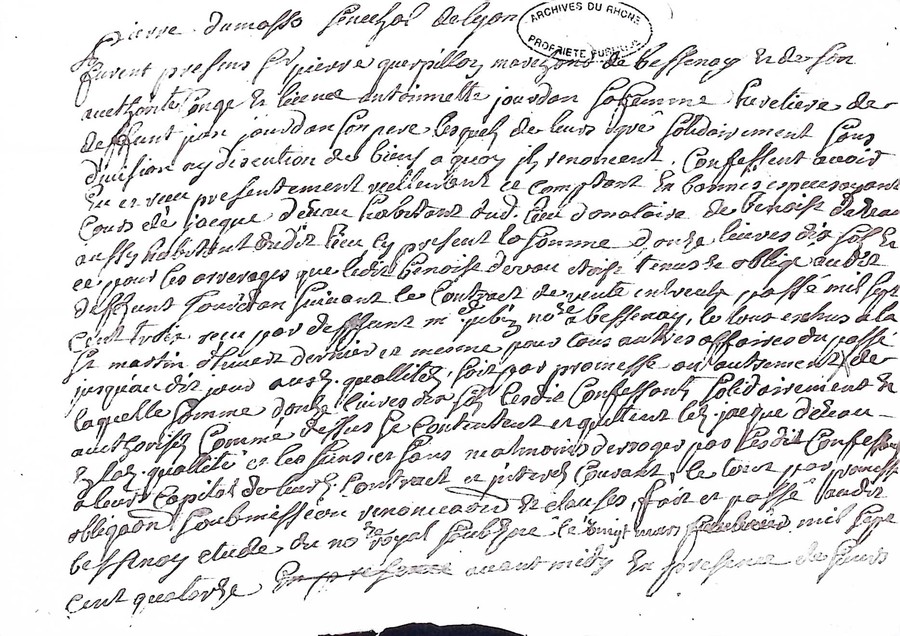 Pierre dumasso Senechal de lyon
ARCHIVES DU RHONE
PROPRIETE PUBLIQUE
furent presens Sr pierre guerpillon marchand de bessenay Et de son
authorité Conge Et licence antoinette jourdan sa femme heretiere de
deffunt jean jourdan son pere lesquels de leurs gré solidairement sans
division ny discution de biens a quoy ils renoncent, Confessent avoir
Eu et receu presentement reellement et Comptant En bonnes especes ayant
Cours de jacque dereau habitant dud. lieu donataire de benoist dereau
aussy habitant dudit lieu Cy present la somme donze livres dix sols Et
ce pour les arrerages que ledit benoist dereau estoit tenus Et obligé audit
deffunt jourdan suivant le Contract de vente passé mil sept
Cent trois receu par deffunt me no.re a bessenay, le tous echus a la
St martin d'hivert dernier et mesme pour tous autres affaires du passé
jusqu'au dit jour auxd. quallités soit par promesse ou autrement de
laquelle somme donze livres dix sols lesdits Confessant solidairement Et
authorisés Comme dessus se Contentent et quittent led. jacque dereau
Et sad. qualité et les siens et sans neatmoins desroger par lesdit Confessants
a leurs Capital de leurd. Contract et interest Courant, le tout par promesse
obligaon soubmission renonceaon Et clauses, fait et passé audit
bessenay etude du no.re royal soubsigné le vingt mars mil sept
cent quatorze avant midy En presence de sieurs